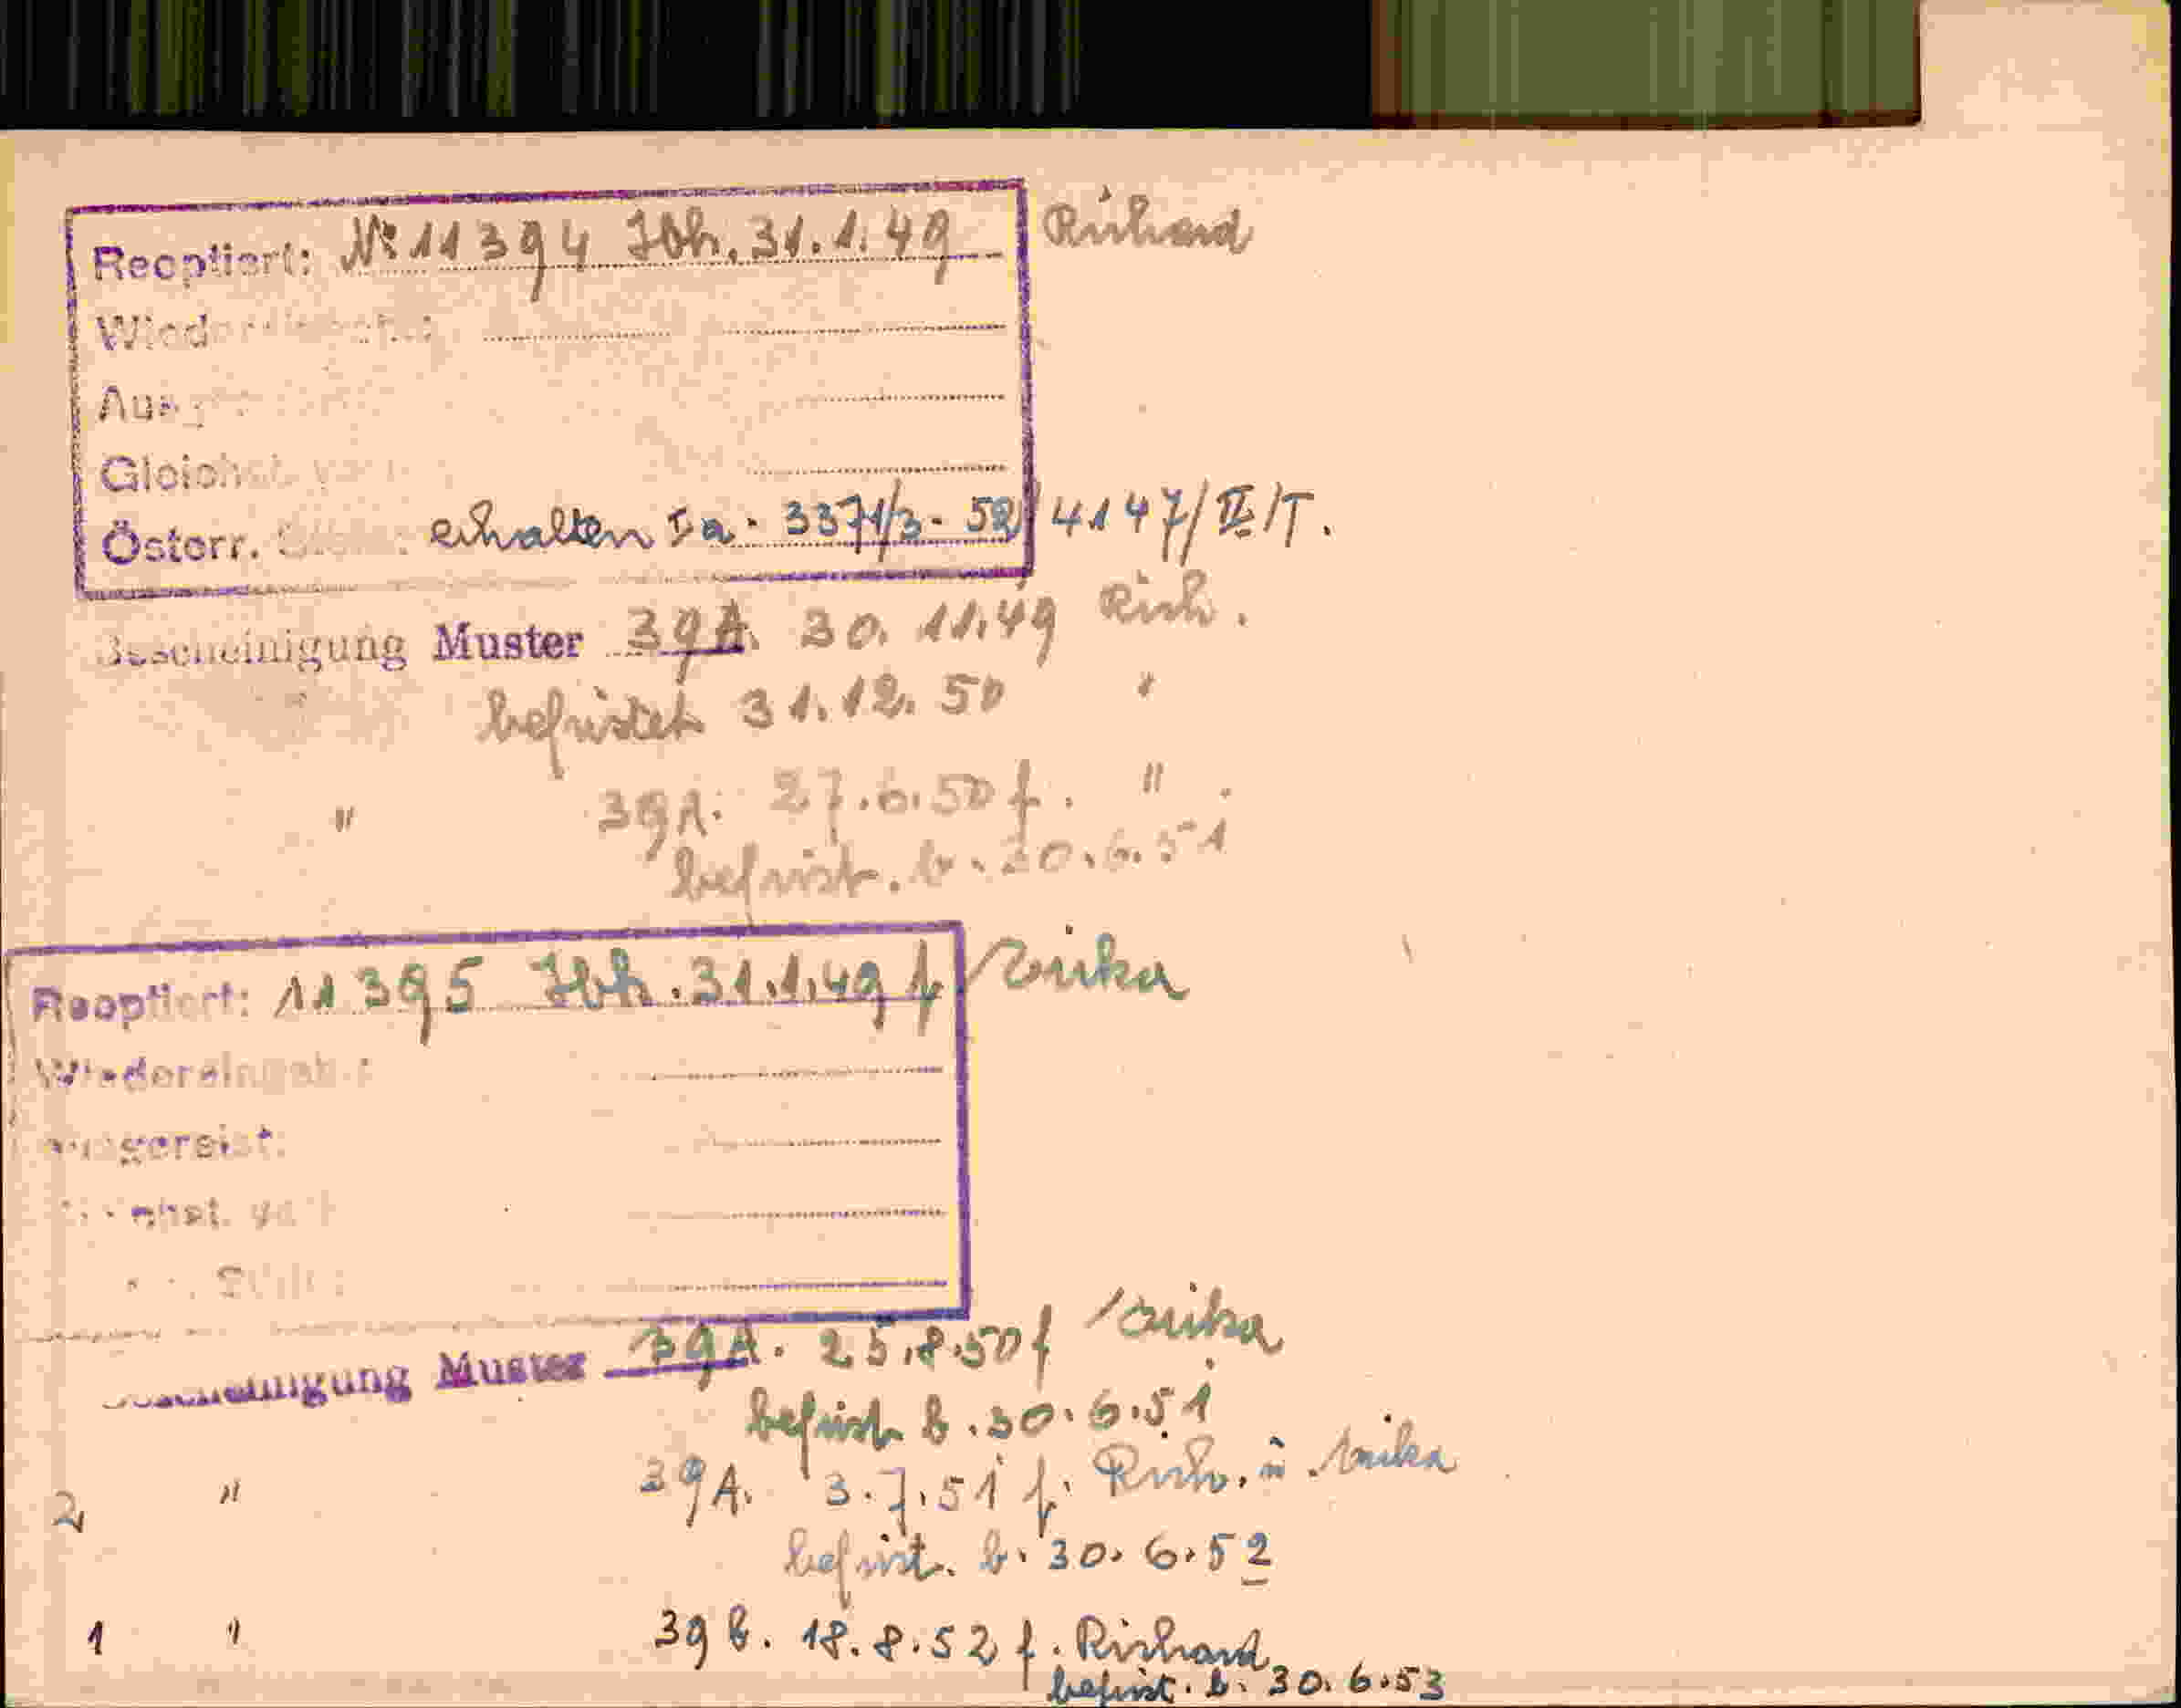 Reoptiert: No 11394 Ibk. 31.1.49 Richard
Österr. erhalten Ia. 3371/3-52/4147/II/T.
Bescheinigung Muster 39A. 30.11.49 Rich.
befristet 31.12.50 "
" 39A. 27.6.50 f. "
befrist. b. 30.6.51
Reoptiert: 11395 Ibk. 31.1.49 f. Erika
Wiedereingeb.:
Ausgereist:
Bescheinigung Muster 39A. 25.8.50 f Erika
befrist. b. 30.6.51
2 " 39A. 3.7.51 f. Rich. u. Erika
befrist. b. 30.6.52
1 " 39 b. 18.8.52 f. Richard
befrist. b. 30.6.53